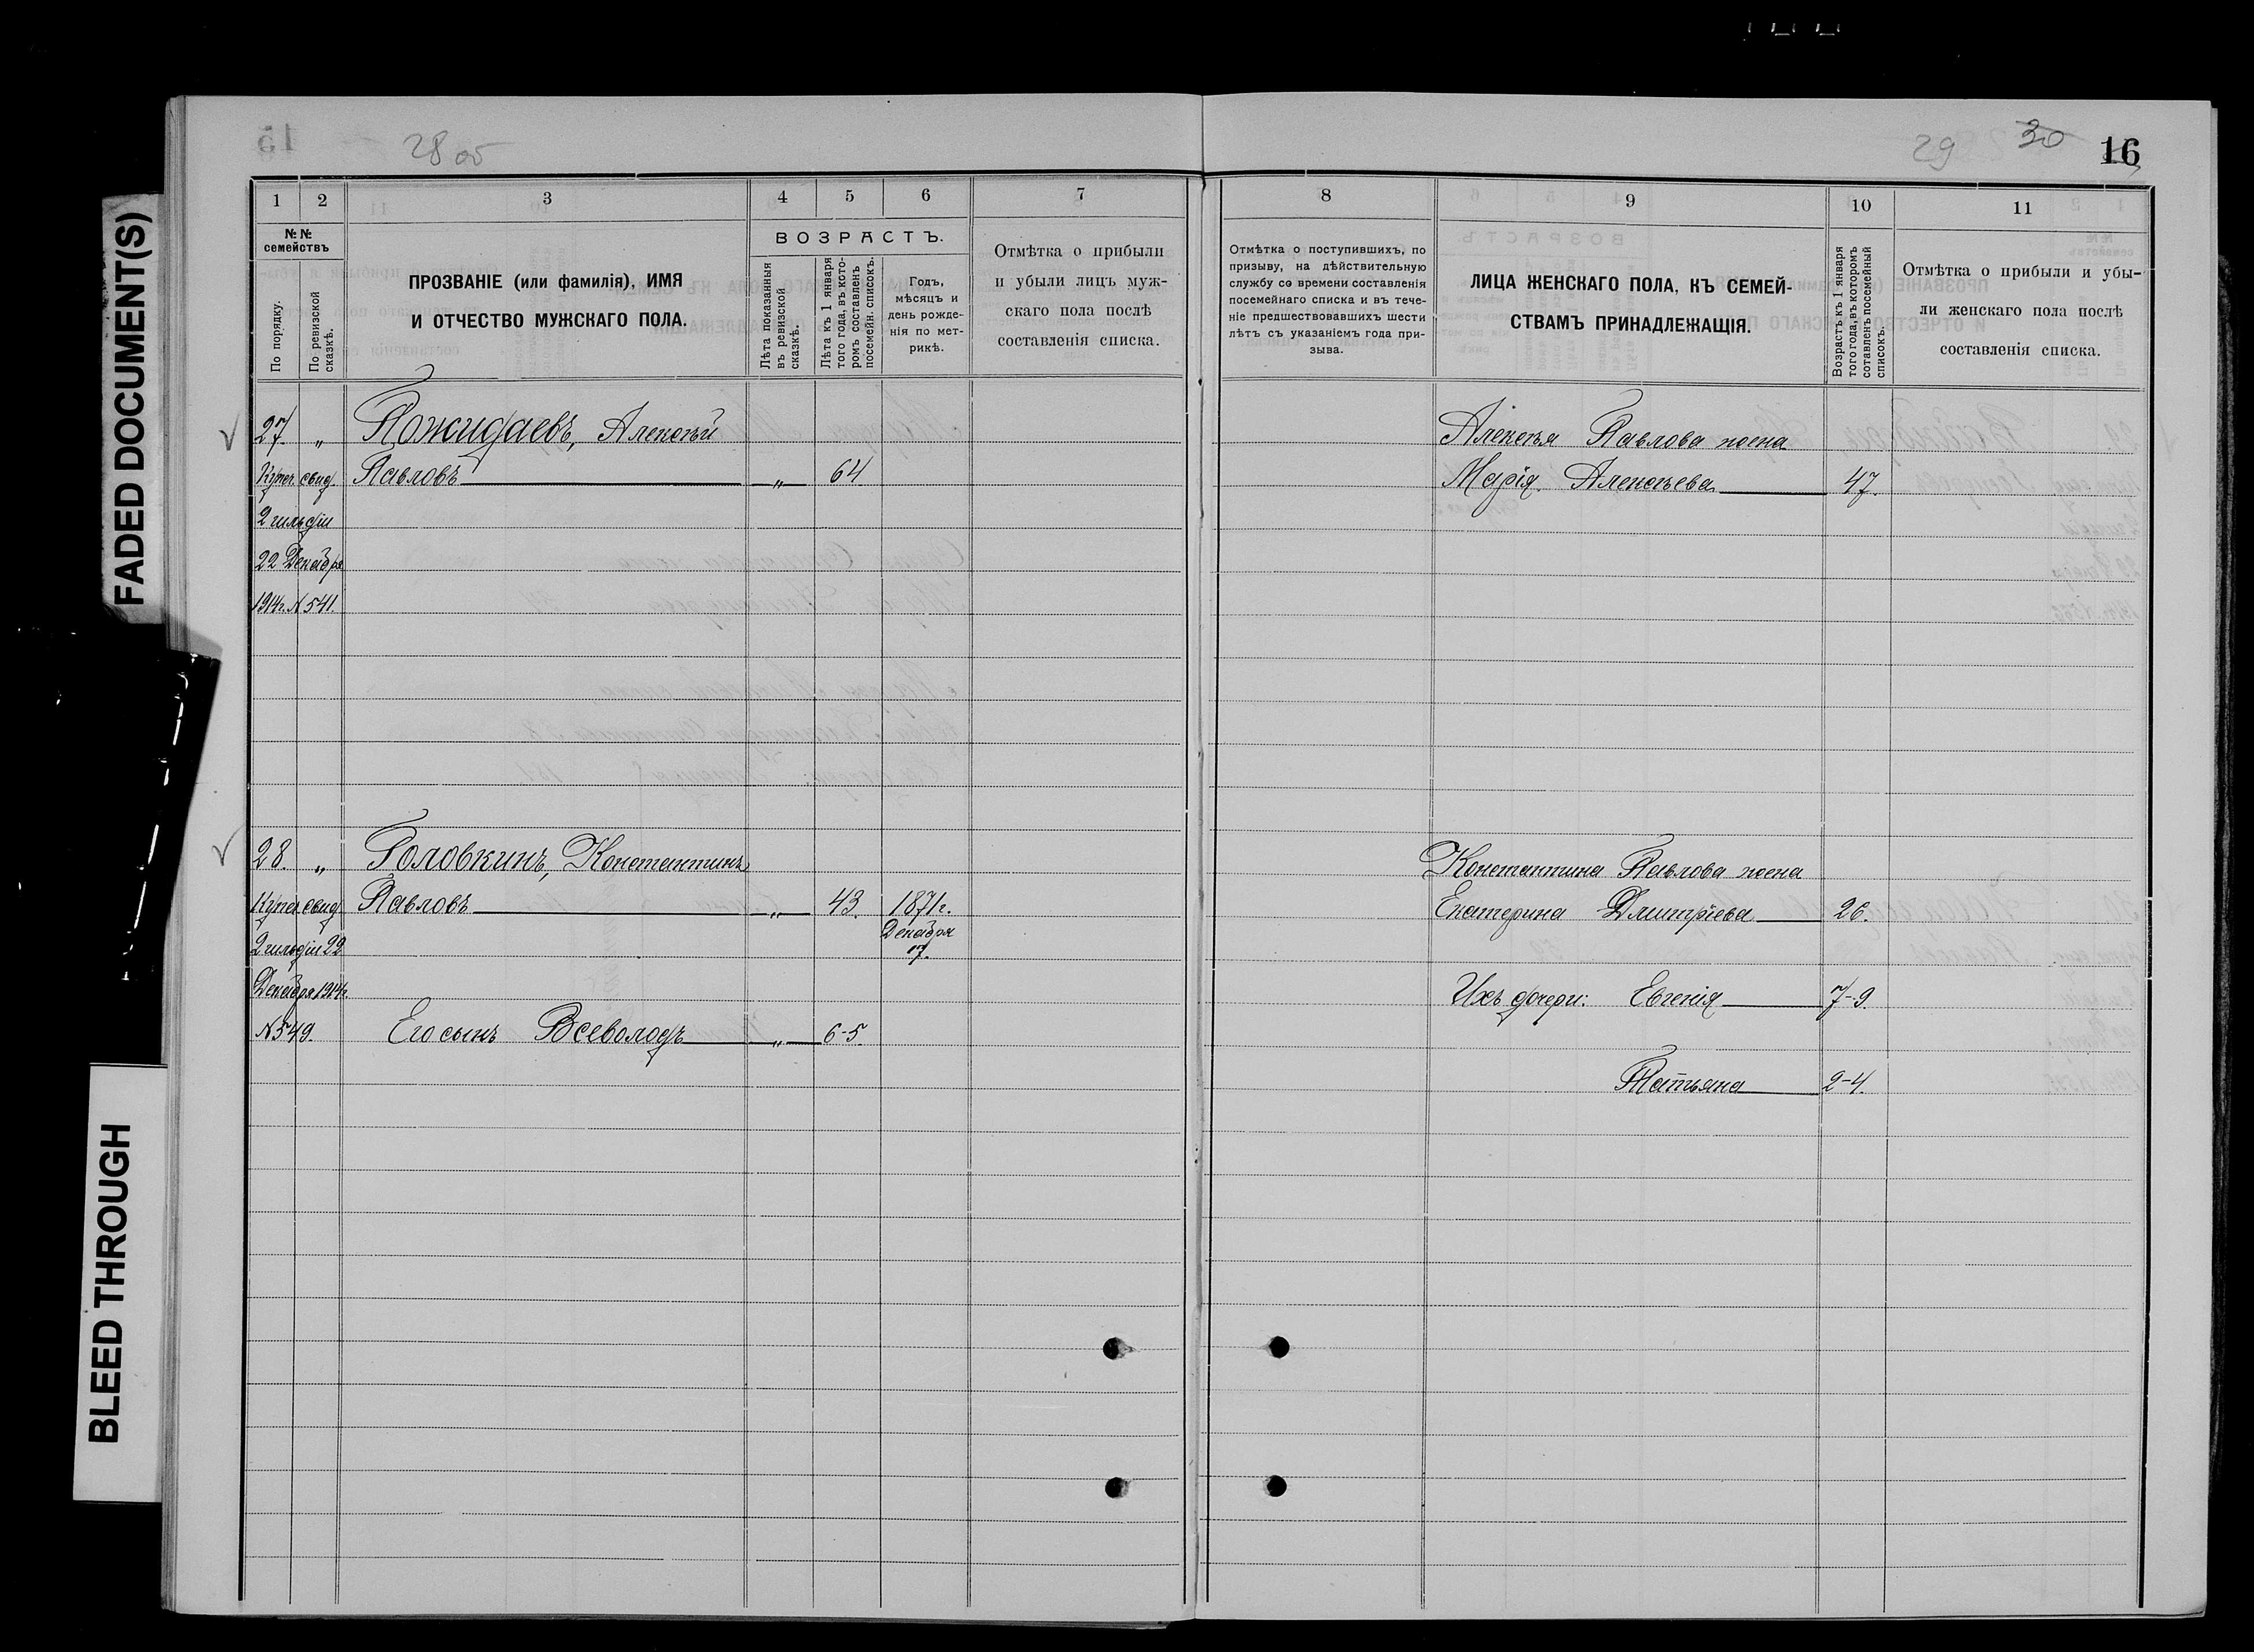 FADED DOCUMENT(S)
BLEED THROUGH
28 об
1
2
3
4
5
6
7
№ №
семействъ
По порядку.
По ревизской
сказкѣ.
ПРОЗВАНІЕ (или фамилія), ИМЯ
И ОТЧЕСТВО МУЖСКАГО ПОЛА.
ВОЗРАСТЪ.
Лѣта показанныя
въ ревизской
сказкѣ.
Лѣта къ 1 января
того года, въ кото-
ромъ составленъ
посемейн. списокъ.
Годъ,
мѣсяцъ и
день рожде-
нія по мет-
рикѣ.
Отмѣтка о прибыли
и убыли лицъ муж-
скаго пола послѣ
составленія списка.
27. „ Пожидаевъ, Алексѣй
Купеч. свид. Павловъ „ 64
2 гильдіи
22 Декабря
1914г. № 541.
28. „ Головкинъ, Константинъ
Купеч. свид. Павловъ „ 43. 1871г.
Декабря
17.
2 гильдіи 22
Декабря 1914г.
№ 549. Его сынъ Всеволодъ „ 6-5.
29 30 16
8
9
10
11
Отмѣтка о поступившихъ, по
призыву, на дѣйствительную
службу со времени составленія
посемейнаго списка и въ тече-
ніе предшествовавшихъ шести
лѣтъ съ указаніемъ года при-
зыва.
ЛИЦА ЖЕНСКАГО ПОЛА, КЪ СЕМЕЙ-
СТВАМЪ ПРИНАДЛЕЖАЩІЯ.
Возрастъ къ 1 января
того года, въ которомъ
составленъ посемейный
списокъ.
Отмѣтка о прибыли и убы-
ли женскаго пола послѣ
составленія списка.
Алексѣя Павлова жена
Марія Алексѣева 47.
Константина Павлова жена
Екатерина Дмитріева 26.
Ихъ дочери: Евгенія 7-9.
Татьяна 2-4.